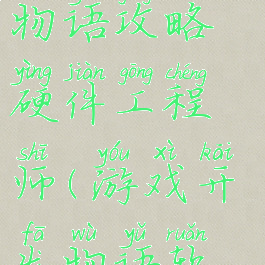 物语攻略
yìng jiàn gōng chéng
硬件工程
shī ( yóu xì kāi
师(游戏开
fā wù yǔ ruǎn
发物语软